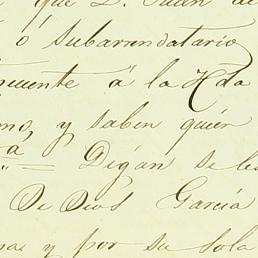 que D. Juan de
ó Subarrendatario
á la Hda
y saben quién
Digan se
De Dios García
y por su sola